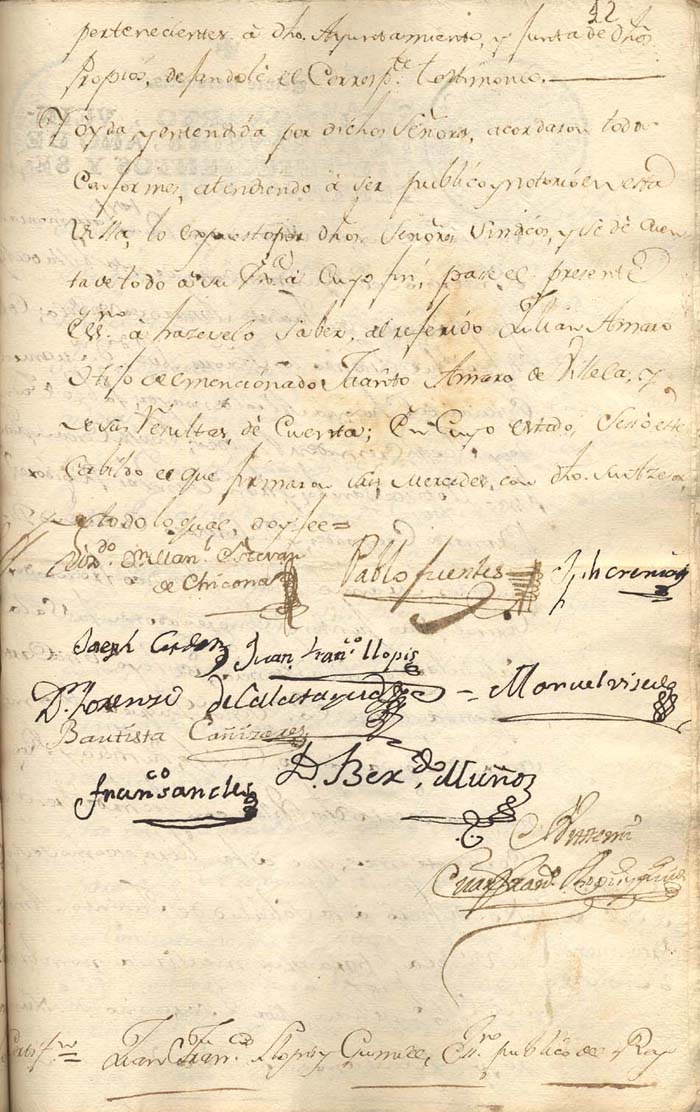 42
pertenecientes â dho. Ayuntamiento, y Junta de dhos.
Propios, dejandole el Corresp.te testimonio.
Y oyda y entendida por dichos Señores, acordaron todos
conformes, atendiendo â ser publico y notorio en esta
Villa, lo expuesto por dhos. Señores Sindicos, y se dé cuen
ta de todo a su a cuyo fin, pase el presente
Ess.no â hazerselo saber, al referido Julian Amaro
é Hijo el mencionado Juanito Amaro de Villela, y
de sus resultas, dé Cuenta; En cuyo estado, Sesó este
Cabildo el que firmaron sus Mercedes, con dho.
de todo lo qual, doy fee=
Estevan
de Chicona
Pablo fuentes
Joseph
Juan fran.co llopis
D.n Lorenzo de Calatayud = Manuel
Bautista Cañizares
fran.co sanches
D. Ber.do Muñoz
Ante mi
Juan Fran.co
Juan Fran.co Llopis y Ess.no publico del Rey